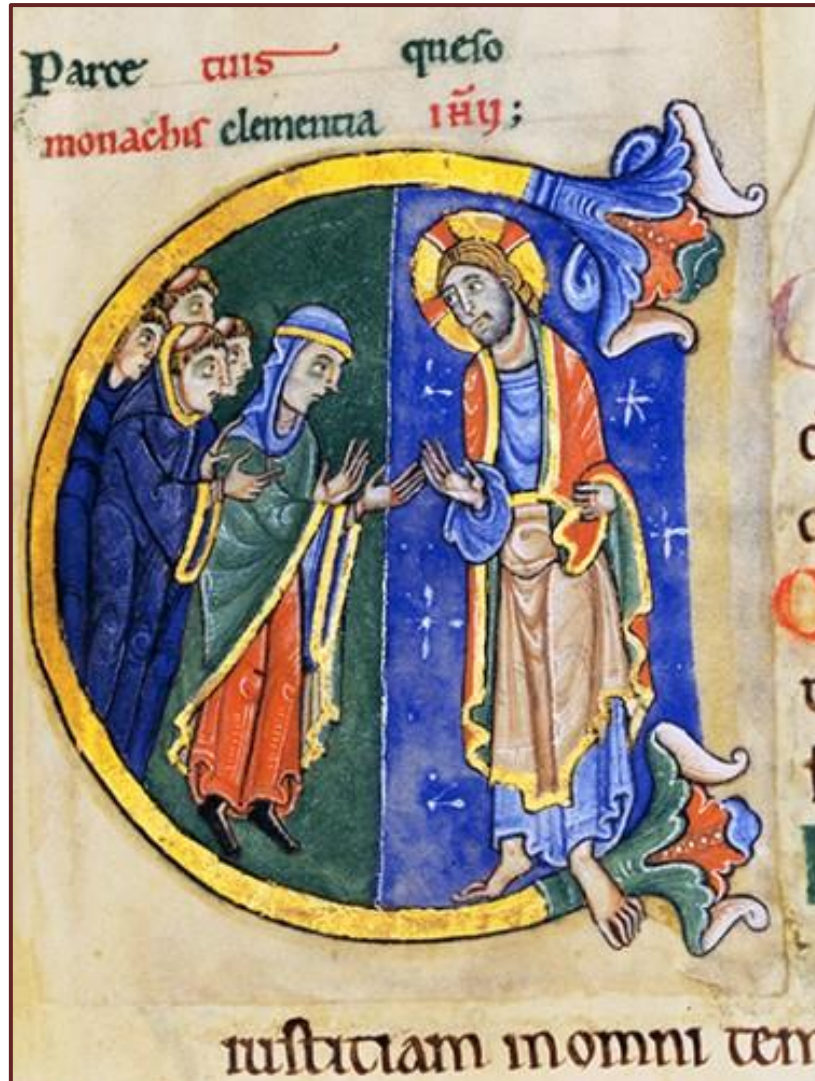 Parce tuis queso
monachis clementia iħu;
C
iustitiam in omni tem